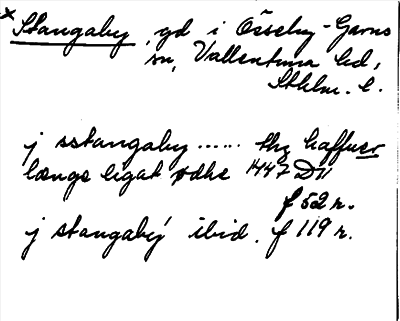 × Stangaby, gd i Össeby-Garns
sn, Vallentuna hd,
Sthlm. l.
j sstangaby ...... thz haffuer
længe ligat ødhe 1447 D11
f 52 r.
j stangaby ibid. f 119 r.